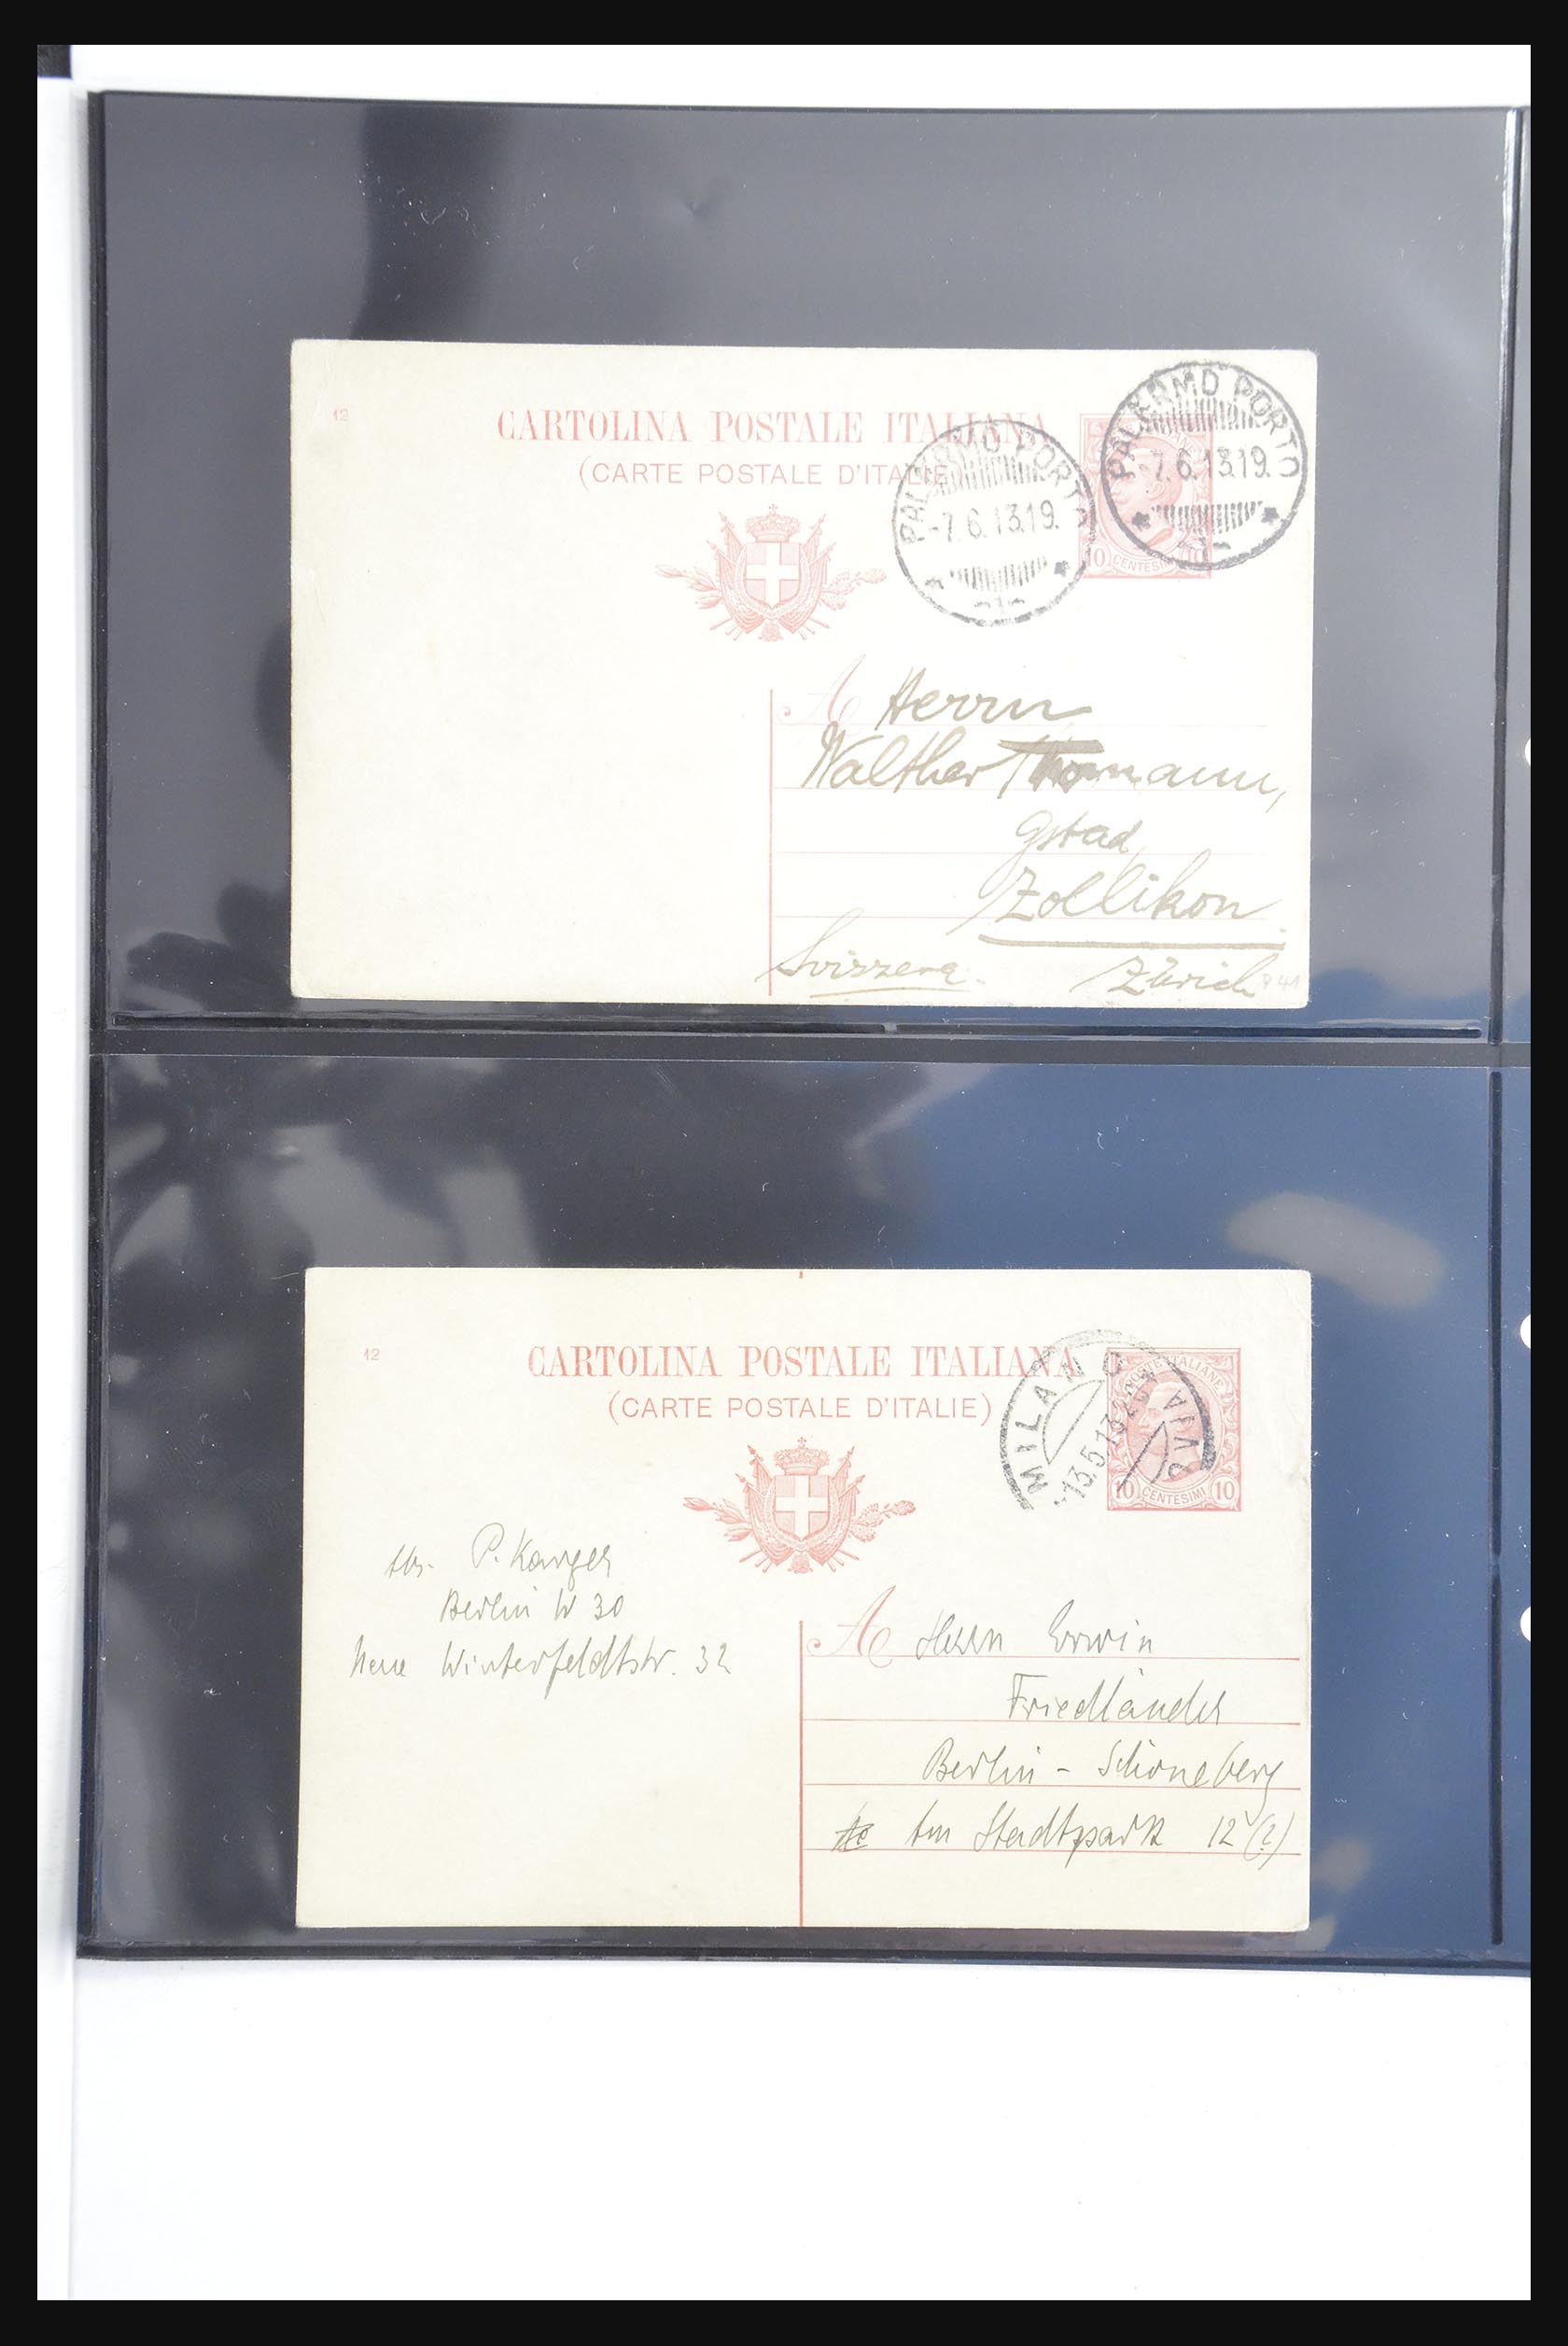 12
CARTOLINA POSTALE ITALIANA
(CARTE POSTALE D'ITALIE)
PALERMO PORTO
-7.6.13.19.
PALERMO PORTO
-7.6.13.19.
10 CENTESIMI 10
A Herrn
Walther Thomann,
Gstad
Zollikon
Svizzera. Zürich
P 41
12
CARTOLINA POSTALE ITALIANA
(CARTE POSTALE D'ITALIE)
MILANO
13.5.13
POSTE ITALIANE
10 CENTESIMI 10
Abs. P. Karger
Berlin W 30
Neue Winterfeldtstr. 32
A Herrn Erwin
Friedländer
Berlin - Schöneberg
Am Stadtpark 12 (?)